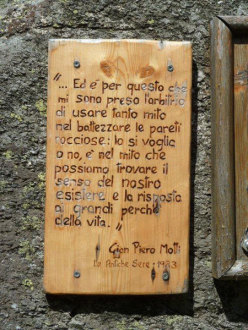 "... Ed e' per questo che
mi sono preso l'arbitrio
di usare tanto mito
nel battezzare le pareti
rocciose: lo si voglia
o no, e' nel mito che
possiamo trovare il
senso del nostro
esistere e la risposta
ai grandi perche'
della vita. "
Gian Piero Motti
La Antiche Sere : 1983